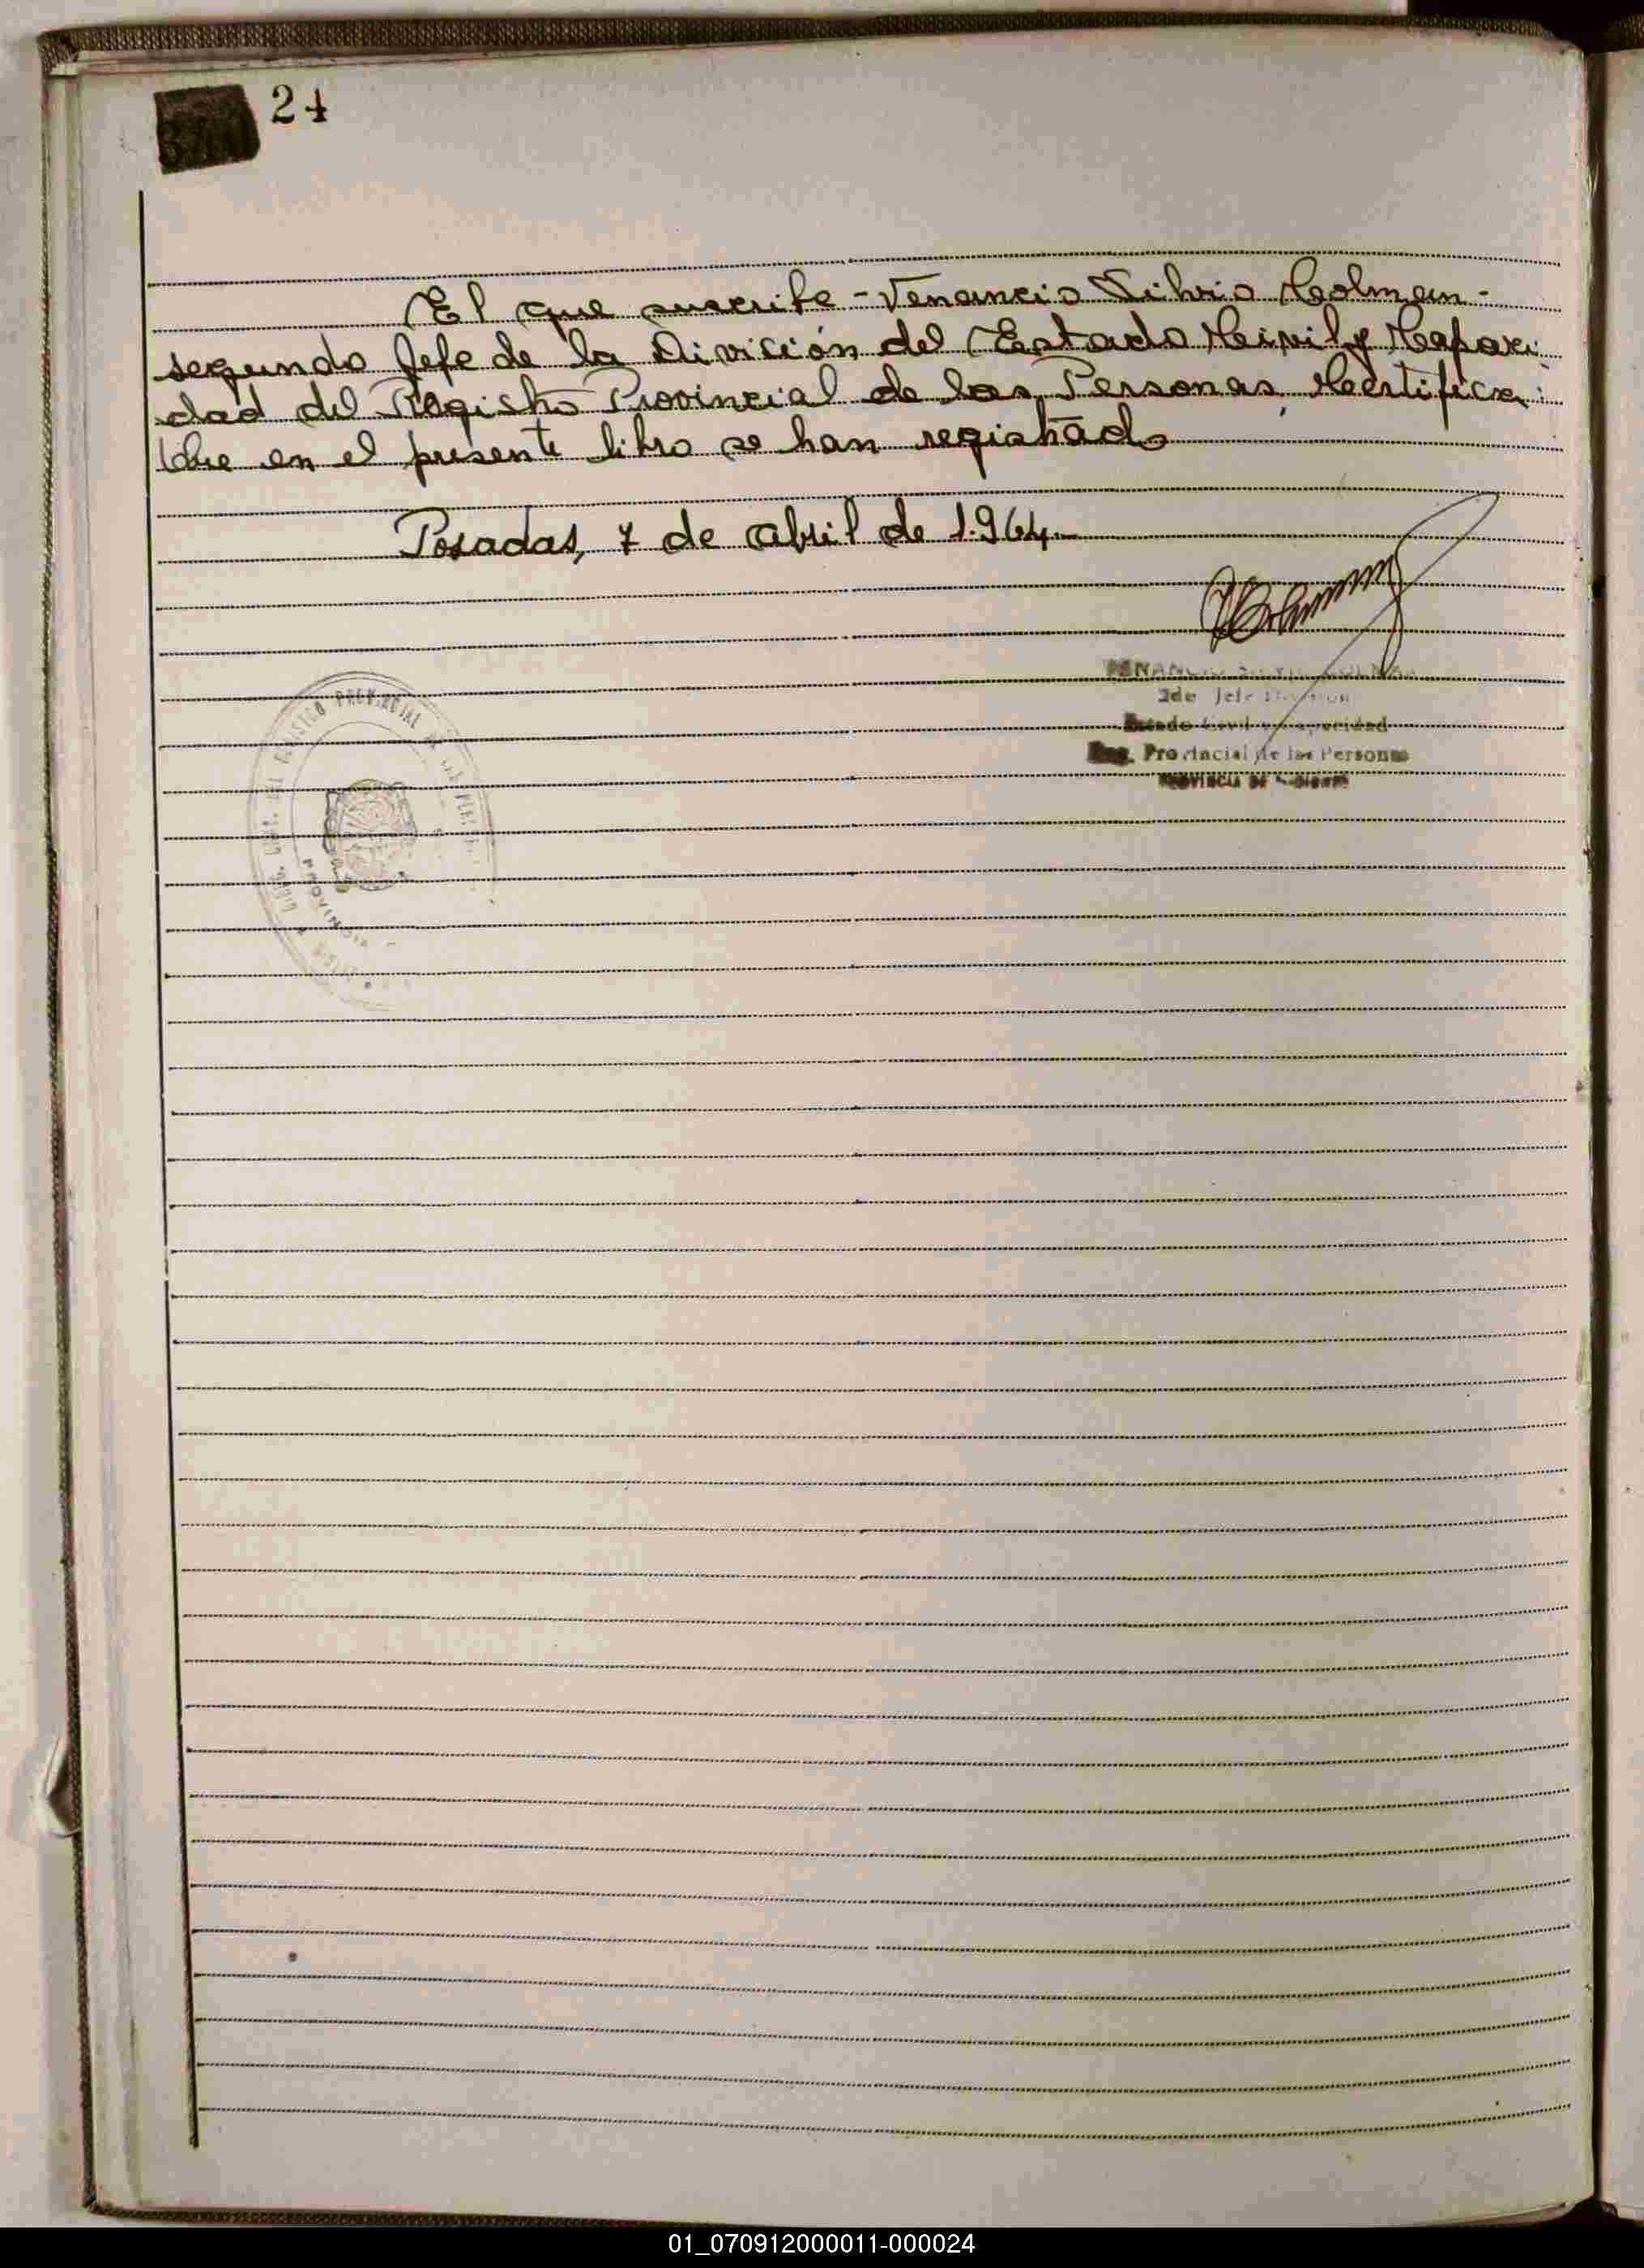 24
El que suscribe - Venancio Silvio Colman -
segundo Jefe de la División del Estado Civil y Capaci
dad del Registro Provincial de las Personas, Certifica:
Que en el presente libro se han registrado
Posadas, 7 de abril de 1.964.-
VENANCIO
2do Jefe Division
Estado Civil y Capacidad
Reg. Provincial de las Personas
PROVINCIA DE MISIONES
REGISTRO PROVINCIAL
PROVINCIA
01_070912000011-000024